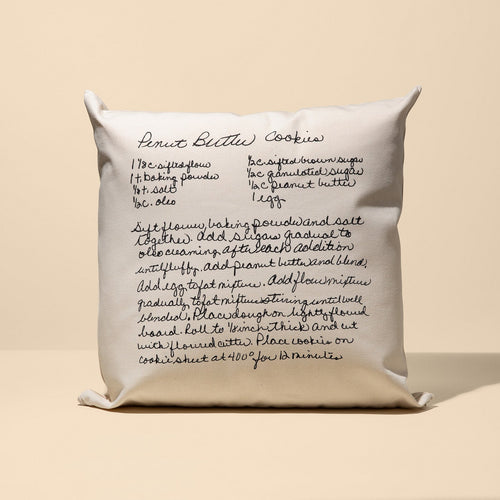 Penut Butter Cookies
1 1/8 c sifted flour
1 t. baking powder
1/8 t. salt
1/2 c. oleo
1/2 c sifted brown sugar
1/2 c granulated sugar
1/2 c peanut butter
1 egg
Sift flour, baking powder and salt
together. Add sugars gradual to
oleo creaming after each addition
until fluffy, add peanut butter and blend.
Add egg to fat mixture. Add flour mixture
gradually to fat mixture stirring until well
blended. Place dough on lightly floured
board. Roll to 1/8 inch thick and cut
with floured cutter. Place cookies on
cookie sheet at 400° for 12 minutes